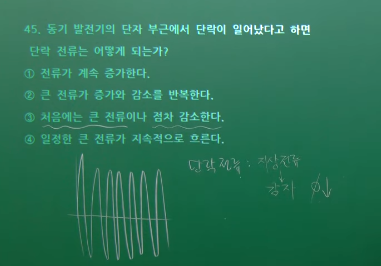 45. 동기 발전기의 단자 부근에서 단락이 일어났다고 하면
단락 전류는 어떻게 되는가?
① 전류가 계속 증가한다.
② 큰 전류가 증가와 감소를 반복한다.
③ 처음에는 큰 전류이나 점차 감소한다.
④ 일정한 큰 전류가 지속적으로 흐른다.
단락전류 : 지상전류
↓
감자 ∅↓